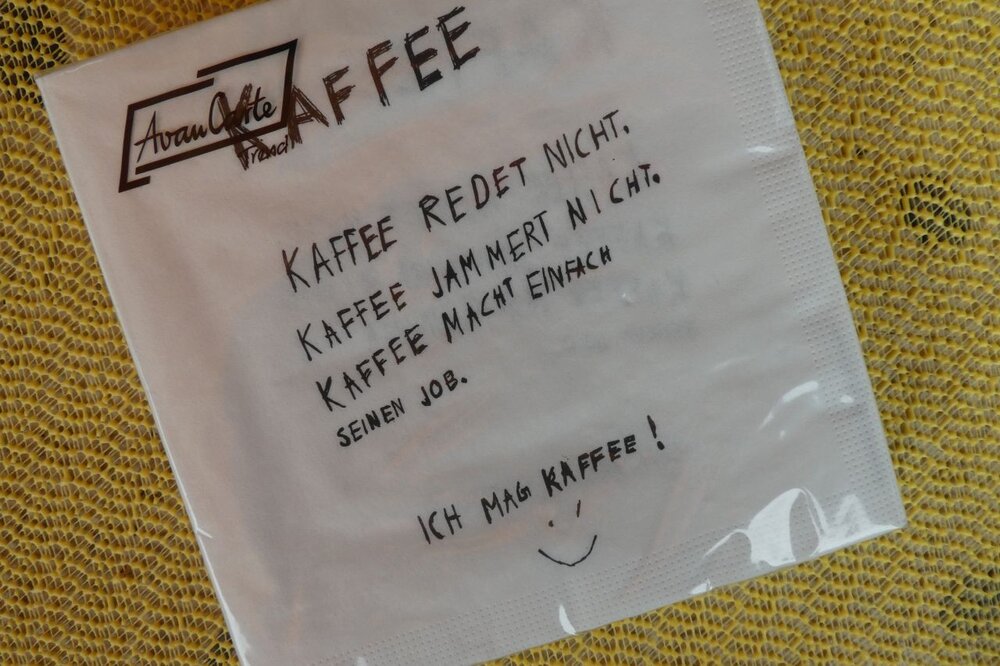 KAFFEE
Avan Carte
Trend
KAFFEE REDET NICHT.
KAFFEE JAMMERT NICHT.
KAFFEE MACHT EINFACH
SEINEN JOB.
ICH MAG KAFFEE!